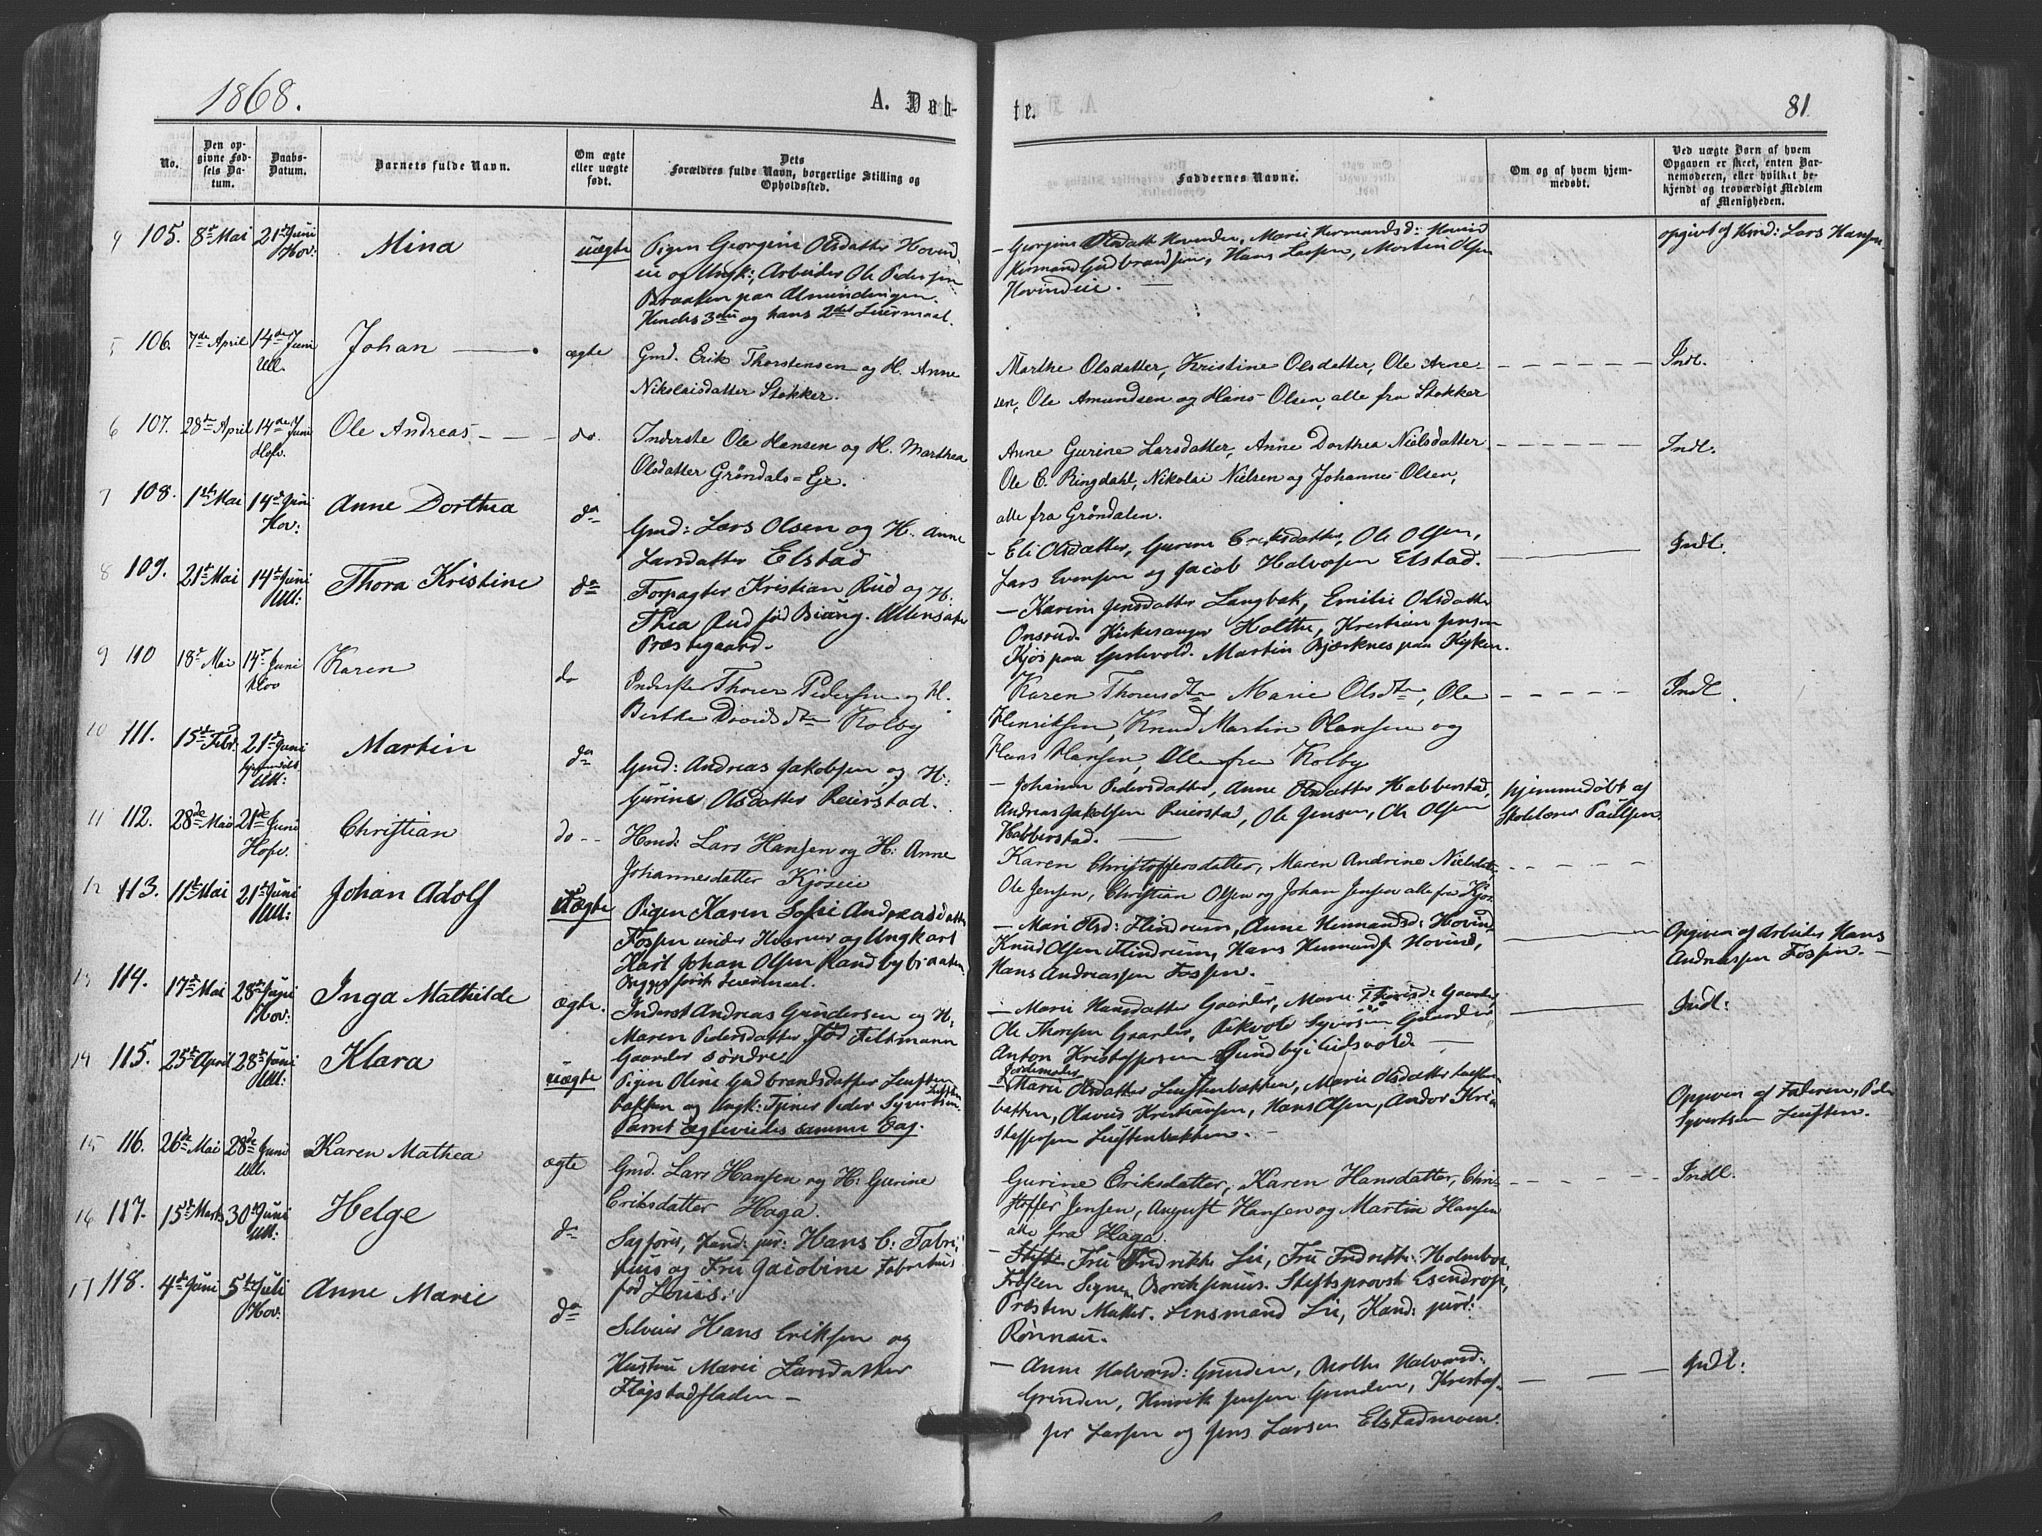 1868.
A. Døb-
te.
81.
No.
Den op-
givne Fød-
sels Da-
tum.
Daabs-
Datum.
Barnets fulde Navn.
Om ægte
eller uægte
født.
Dets
Forældres fulde Navn, borgerlige Stilling og
Opholdssted.
Faddernes Navne.
Om og af hvem hjem-
medøbt.
Ved uægte Børn af hvem
Opgaven er skeet, enten Bar-
nemoderen, eller hvilket be-
kjendt og troværdigt Medlem
af Menigheden.
105. 8de Mai 21de Juni Hov: Mina uægte
Pigen Georgine Olsdatter Hovind
eie og Ungk: Arbeider Ole Pedersen
Braaten paa Almindingen.
Hendes 3die og hans 2det Leiermaal.
Georgine Olsdatt Hovindeie, Marie Hermandsd: Hovind
Herman Gudbrandsen, Hans Larsen, Morten Olsen
Hovindeie.
opgivt af Kmd: Lars Hansen
106. 7de April 14de Juni Ull. Johan ægte
Gmd. Erik Thorstensen og H. Anne
Nikolaisdatter Stokker.
Marthe Olsdatter, Kristine Olsdatter, Ole Arne-
sen, Ole Amundsen og Hans Olsen, alle fra Stokker
Indl.
107. 28de April 14de Juni Hofv. Ole Andreas do.
Inderste Ole Hansen og H. Marthea
Olsdatter Grøndals=Eje.
Anne Gurine Larsdatter, Anne Dorthea Nielsdatter
Ole C. Ringdahl, Nikolai Nielsen og Johannes Olsen,
alle fra Grøndalen.
Indl.
108. 1ste Mai 14de Juni Hov: Anne Dorthea do
Gmd: Lars Olsen og H. Anne
Larsdatter Elstad
Eli Olsdatter, Gurine Eriksdatter, Ole Olsen,
Lars Evensen og Jacob Halvorsen Elstad.
Indl.
109. 21de Mai 14de Juni Ull: Thora Kristine do
Forpagter Kristian Rud og H.
Thea Rud født Biong. Ullensaker
Præstegaard.
Karine Jensdatter Langbak, Emilie Olsdatter
Onsrud. Kirkesanger Holthe, Kristian Jensen
Kjos paa Gjestvold. Martin Bjærknes paa Kyken.
110 18de Mai 14de Juni Hov Karen do
Inderste Thorer Pedersen og H.
Berthe Davidsdtr Kolby
Karen Thorersdtr Marie Olsdtr, Ole
Henriksen, Knud Martin Hansen og
Hans Hansen, Alle fra Kolby
Indl.
111. 15de Febr. 21de Juni Ull: Martin do
Gmd: Andreas Jakobsen og H:
Gurine Olsdatter Reierstad.
Johanne Pedersdatter, Anne Olsdatter Habberstad,
Andreas Jakobsen Reierstad, Ole Jensen, Ole Olsen
Habberstad.
hjemmedøbt af
Skolelærer Paulsen.
112. 28de Mai 21de Juni Hofv. Christian do
Hmd: Lars Hansen og H: Anne
Johannesdatter Kjøseie
Karen Christoffersdatter, Maren Andrine Nielsdtr,
Ole Jensen, Christian Olsen og Johan Jensen alle fra Kjøs.
113. 11te Mai 21de Juni Ull: Johan Adolf Uægte
Pigen Karen Sofie Andreasdatter
Fossen under Hværner og Ungkarl
Karl Johan Olsen Randbybraaten
Begges første Leiermaal.
Mari Olsd: Flindrum, Anne Hermandsd: Hovind
Knud Olsen Flindrum, Hans Hermands Hovind,
Hans Andreassen Fossen.
Opgiven af Arbeider Hans
Andreassen Fossen.
114. 17de Mai 28de Juni Hov: Inga Mathilde ægte.
Inderst Andreas Gundersen og H.
Maren Pedersdatter Født Feltmann
Gaarder Søndre
Marie Hansdatter Gaarder, Marie Thorsd: Gaarder,
Ole Thoresen Gaarder, Rikvold Syversen Gaarder
Anton Kristoffersen Sundby i Eidsvold
Indl:
115. 25de April 28de Juni Ull: Klara uægte
Pigen Oline Gudbrandsdatter Leusten
bakken og Ungk: Tjener Peder Syvertsen Leusten
Barnt ægtevies samme Dag.
Jordemoder
Marie Olsdatter Leustenbakken, Marie Olsdatter Leusten
bakken, Olavus Kristiansen, Hans Olsen, Andor Kri
stoffersen Leustenbakken.
Opgiven af Faderen, Peder
Syvertsen Leusten.
116. 26de Mai 28de Juni Ull. Karen Mathea ægte
Gmd. Lars Hansen og H: Gurine
Eriksdatter Haga.
Gurine Eriksdatter, Karen Hansdatter, Chri-
stoffer Jensen, August Hansen og Martin Hansen
alle fra Haga.
Indl.
117. 15de Marts 30de Juni Ull: Helge do
Sagfører, Kand: jur: Hans C: Fabri
cius og Fru Jacobine Fabritius
født Leuis.
Fru Fredrikke Lie, Fru Fredrikke Holmboe,
Frøken Signe Borchsenius. Stiftsprovst Esendrop,
Præsten Muller. Lensmand Lie, Kand: juris:
Rønnau.
118. 4de Juni 5te Juli Hov: Anne Marie do
Selveier Hans Eriksen og
Hustru Marie Larsdatter
Flagstadfladen
Anne Halvorsd: Grinden, Berthe Halvorsd:
Grinden, Henrik Jensen Grinden, Kristof-
fer Larsen og Jens Larsen Elstadmoen.
Indl: